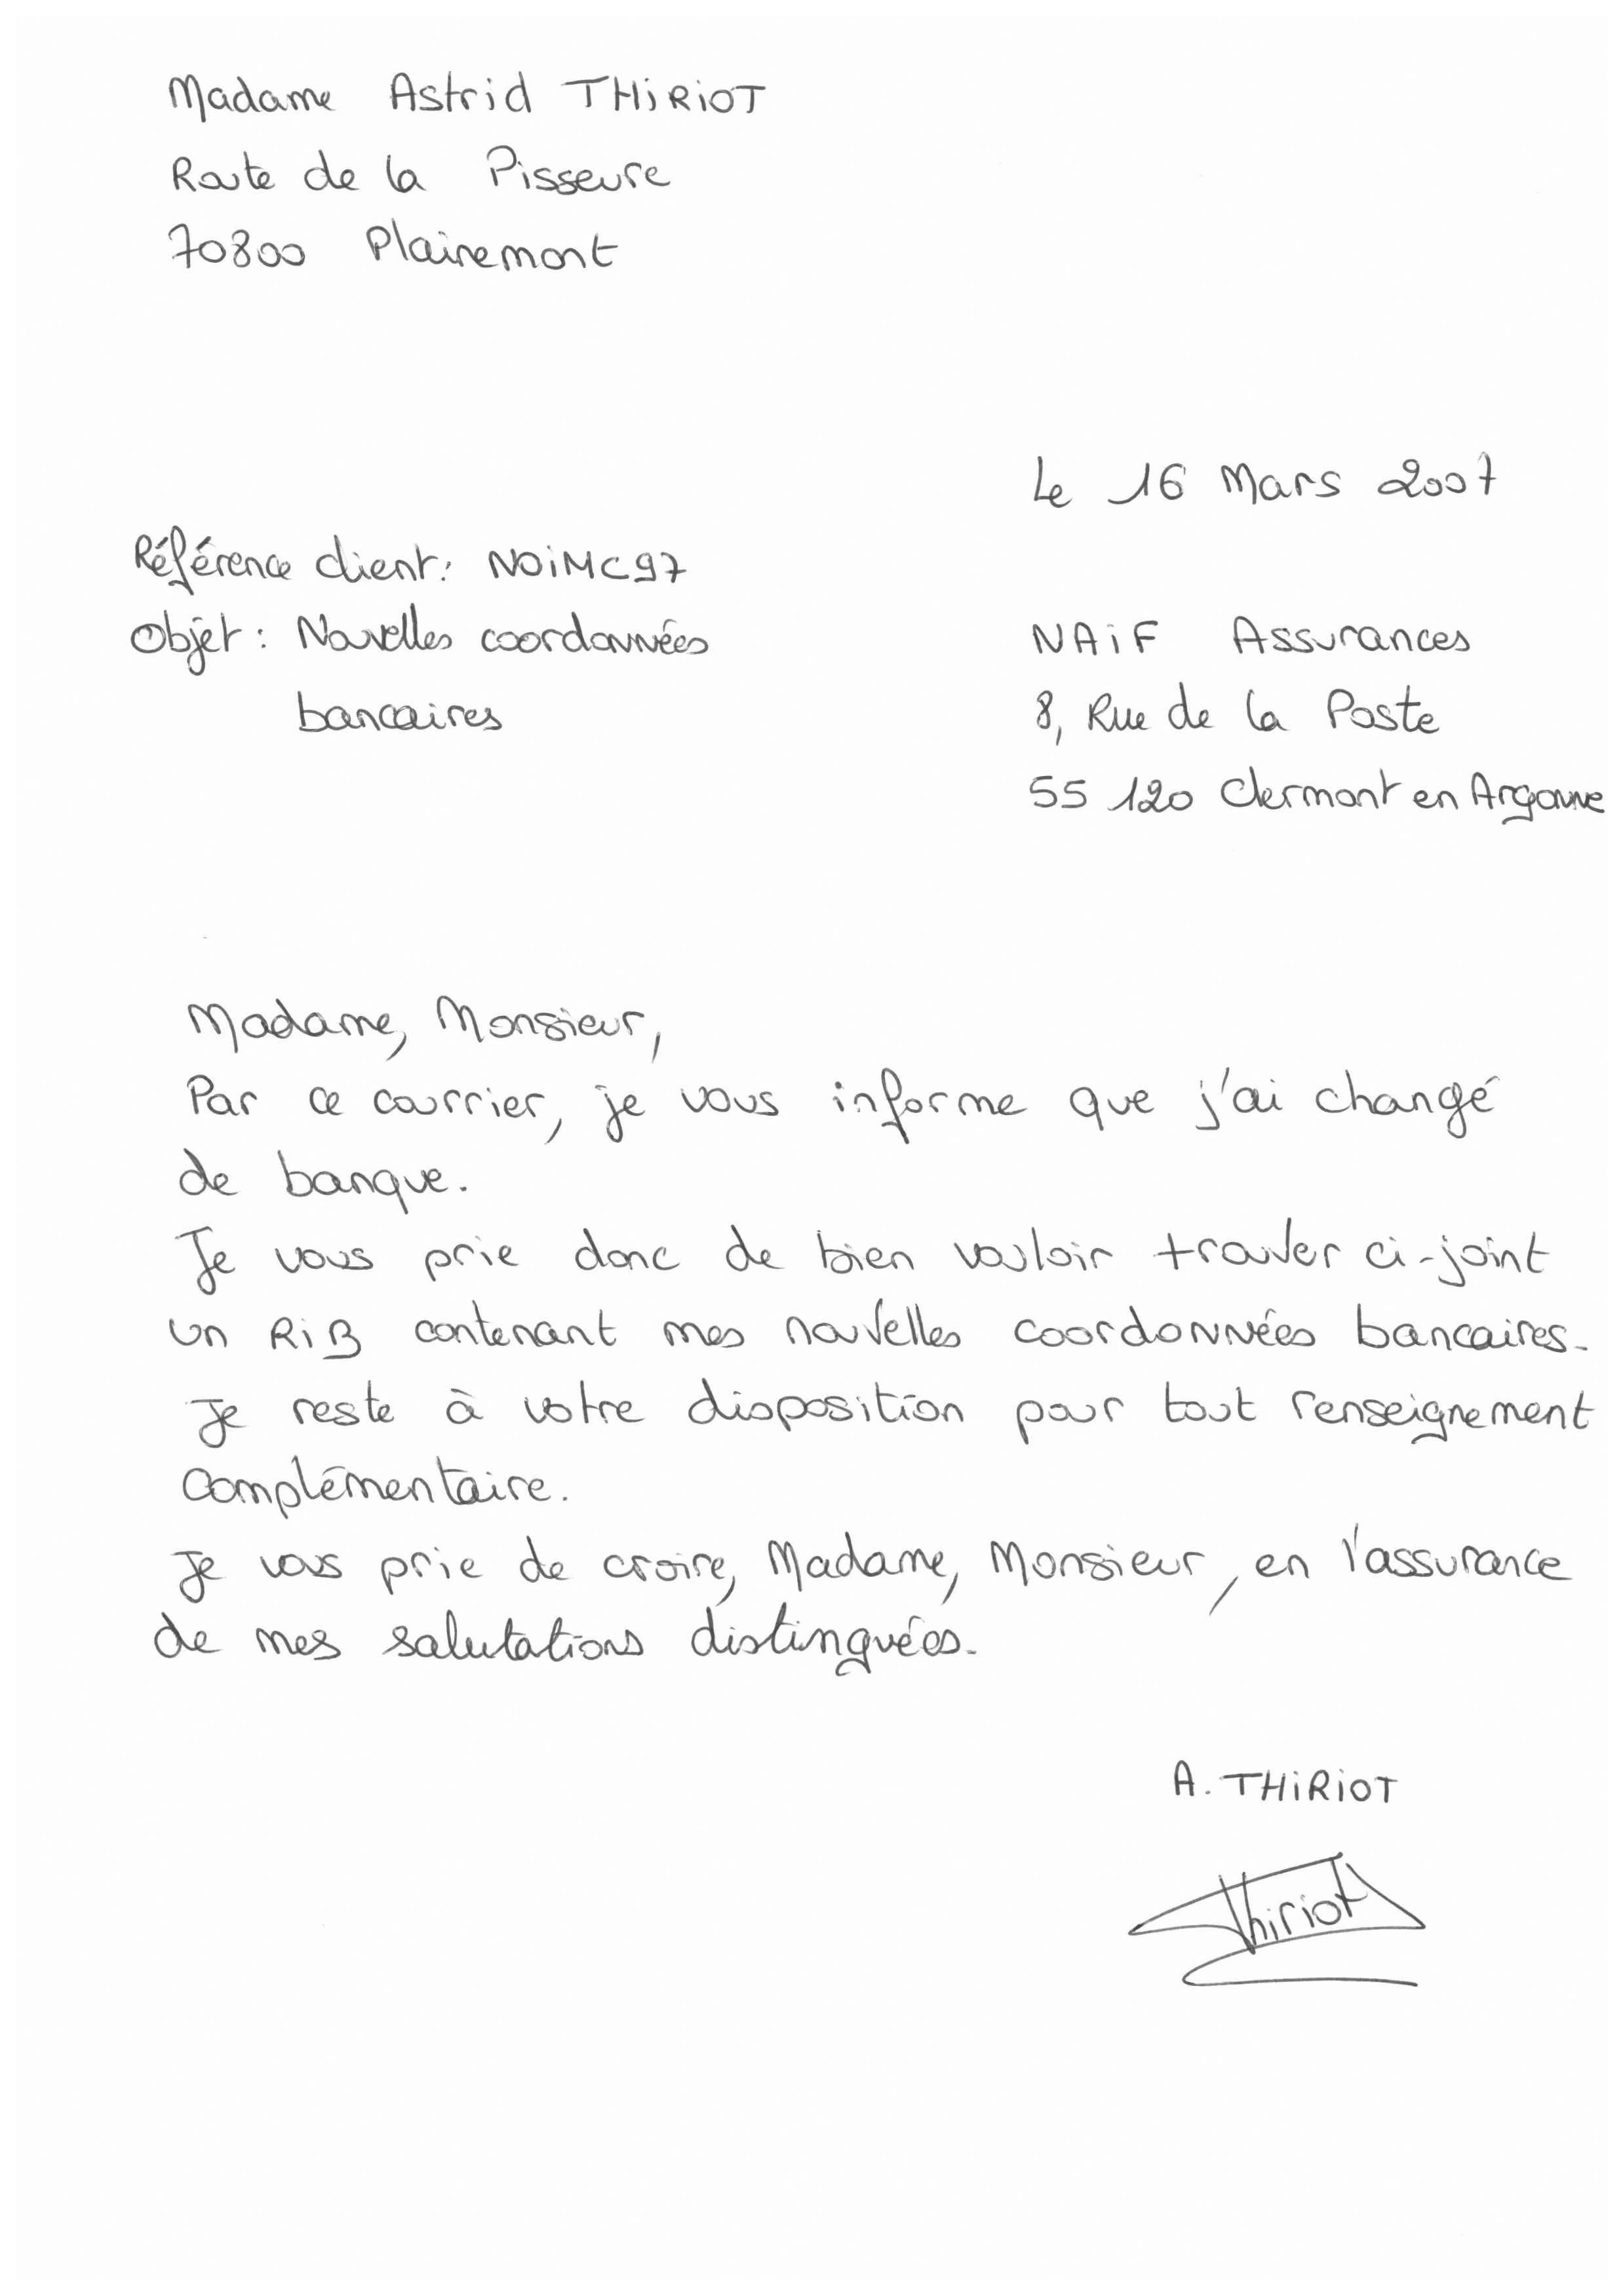 Madame Astrid THIRIOT
Route de la Pisseure
70800 Plainemont
Le 16 Mars 2007
Référence client: NOIMC97
Objet: Nouvelles coordonnées
bancaires
NAIF Assurances
8, Rue de la Poste
55 120 Clermont en Argonne
Madame, Monsieur,
Par ce courrier, je vous informe que j'ai changé
de banque.
Je vous prie donc de bien vouloir trouver ci-joint
un RIB contenant mes nouvelles coordonnées bancaires.
Je reste à votre disposition pour tout renseignement
complémentaire.
Je vous prie de croire, Madame, Monsieur, en l'assurance
de mes salutations distinguées.
A. THIRIOT
Thiriot